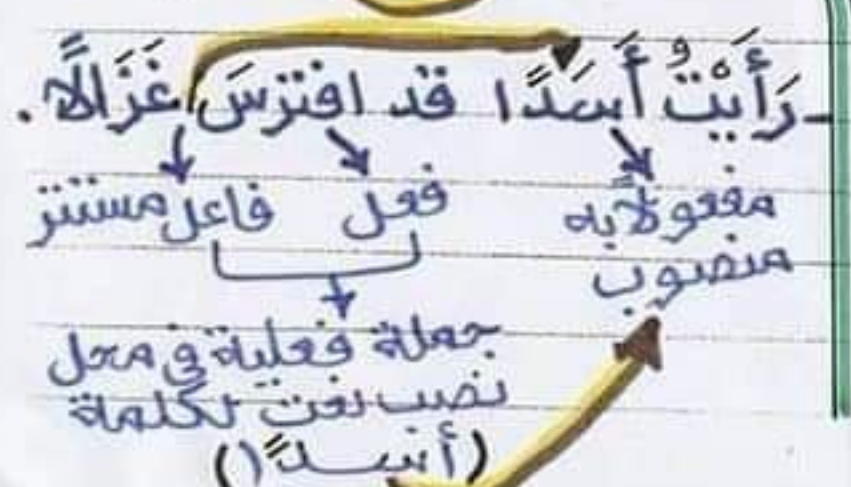 رَأَيْتُ أَسَدًا قد افترسَ غَزَالًا.
مفعولًا به فعل فاعل مستتر
منصوب
جملة فعلية في محل
نصب نعت لكلمة
(أسدًا)